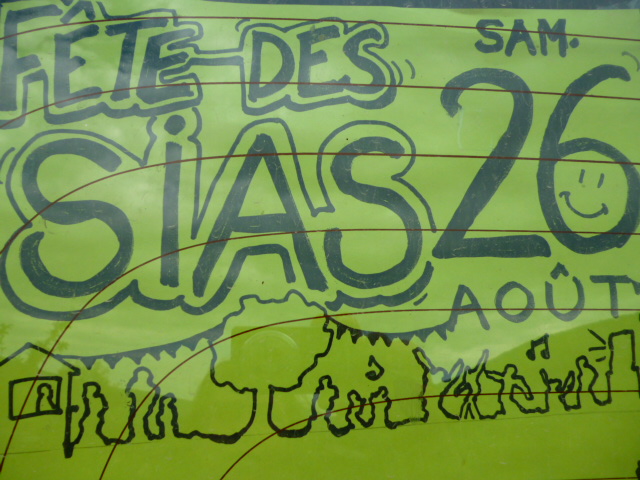 FÊTE DES
SiAS
SAM.
26
AOÛT